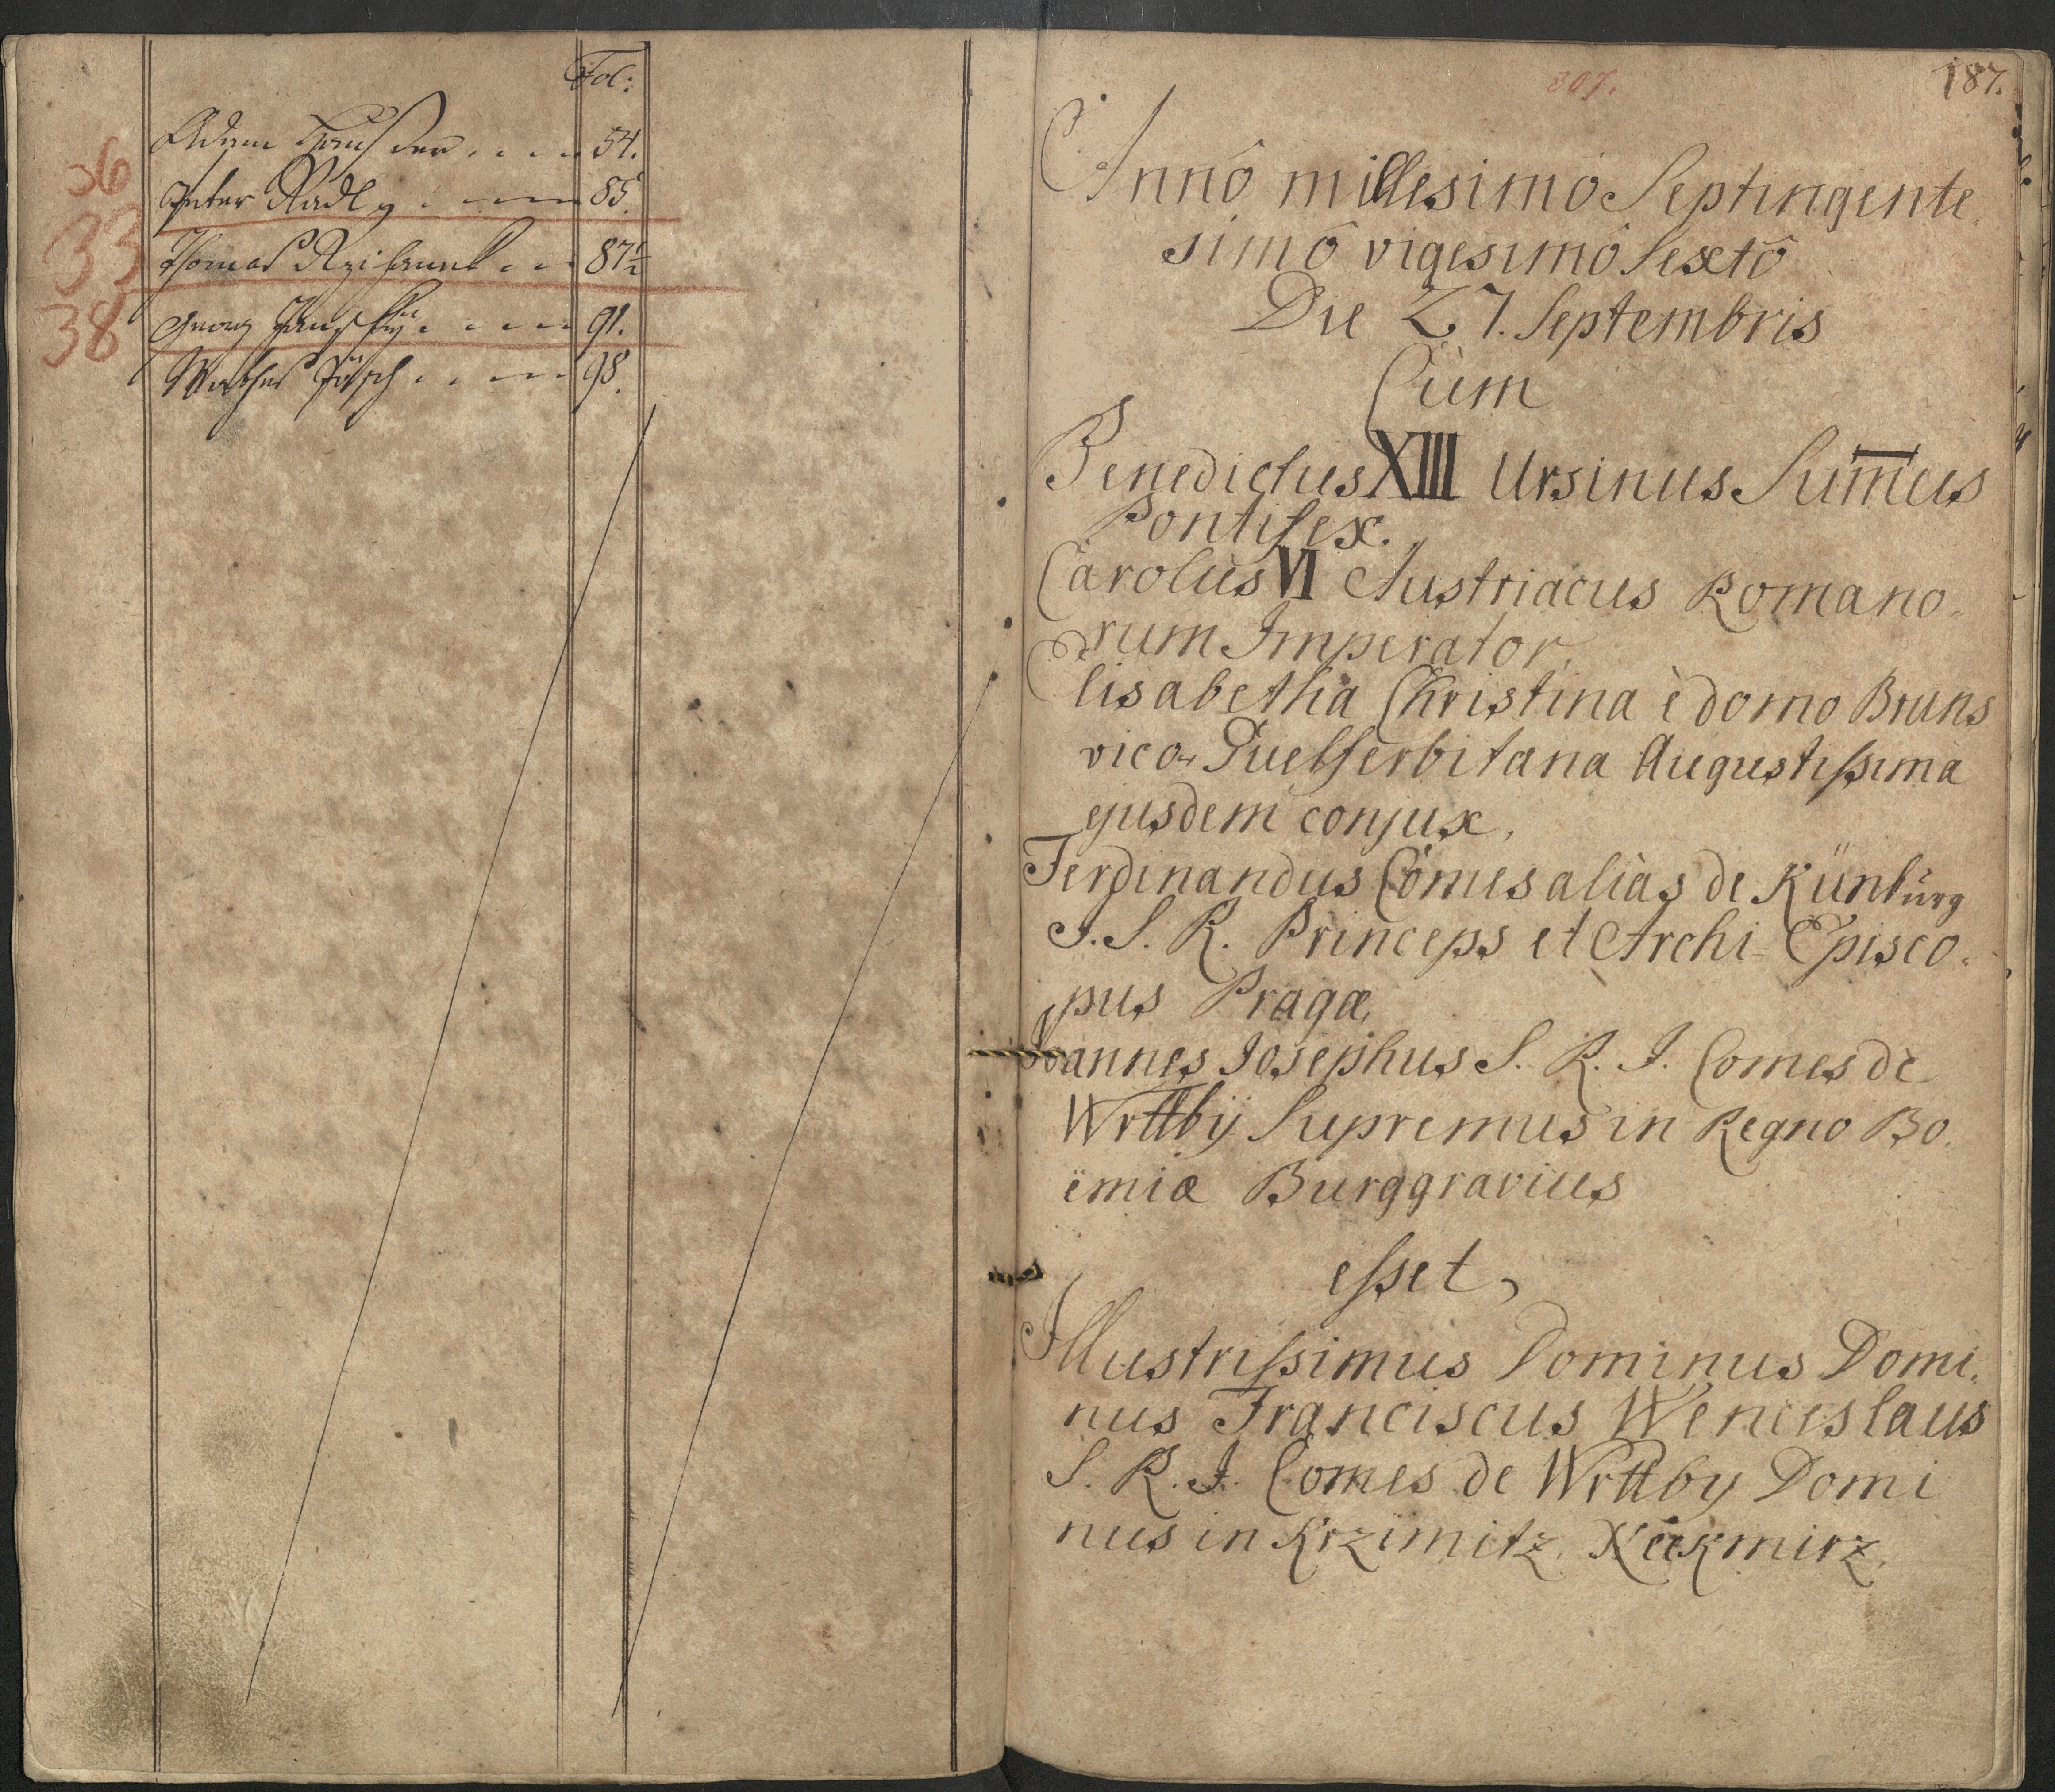 Fol:
Adam Hausner . . . . 54.
36
Peter Radl . . . . 85.
33
Thomas . . . 87½
38
Georg . . . . . 91.
Mathes . . . . 98.
307.
187.
Annô millesimô Septingente
simô vigesimô Sextô
Die 27. Septembris
Cùm
Benedictus XIII Ursinus Sum̄us
Pontifex.
Carolus VI Austriacus Romano.
rum Imperator,
Elisabetha Christina è domo Bruns
vico-Guelferbitana Augustissima
ejusdem conjux,
Ferdinandus Comes aliàs de Künburg
S. R. Princeps et Archi-Episco.
pus Pragæ,
Joannes Josephus S. R. I. Comes de
Wrttbÿ Supremus in Regno Bo.
ëmiæ Burggravius
esset,
Illustrissimus Dominus Domi.
nus Franciscus Wenceslaus
S. R. I. Comes de Wrttby Domi
nus in Krzimitz,